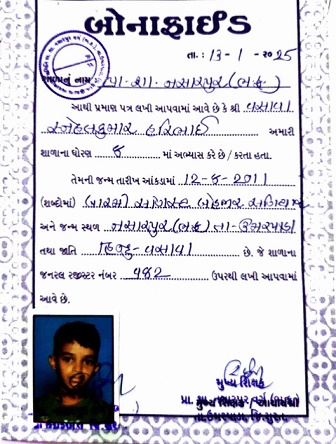 બોનાફાઈડ
તા. : 13 - 1 - ૨૦25
શાળાનું નામ પ્રા. શા. નસારપુર (વર્ગ)
આથી પ્રમાણ પત્ર લખી આપવામાં આવે છે કે શ્રી વસાવા
સ્નેહલકુમાર હરિભાઈ અમારી
શાળાના ધોરણ 8 માં અભ્યાસ કરે છે / કરતા હતા.
તેમની જન્મ તારીખ આંકડામાં 12-8-2011
(શબ્દોમાં) બારમી ઓગસ્ટ બેહજાર અગિયાર
અને જન્મ સ્થળ નસારપુર (વર્ગ) તા- ઉમરપાડા
તથા જાતિ હિન્દુ - વસાવા છે. જે શાળાના
જનરલ રજીસ્ટર નંબર 982 ઉપરથી લખી આપવામાં
આવે છે.
મુખ્ય શિક્ષક
મુખ્ય શિક્ષક આચાર્યશ્રી